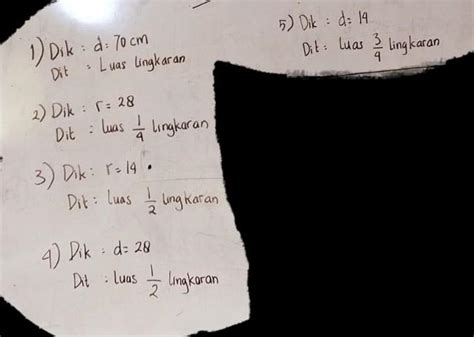 1) Dik : d: 70 cm
Dit : Luas lingkaran
2) Dik : r = 28
Dit : luas 1/4 lingkaran
3) Dik : r = 14
Dit : luas 1/2 lingkaran
4) Dik : d = 28
Dit : luas 1/2 lingkaran
5) Dik : d = 14
Dit : luas 3/4 lingkaran